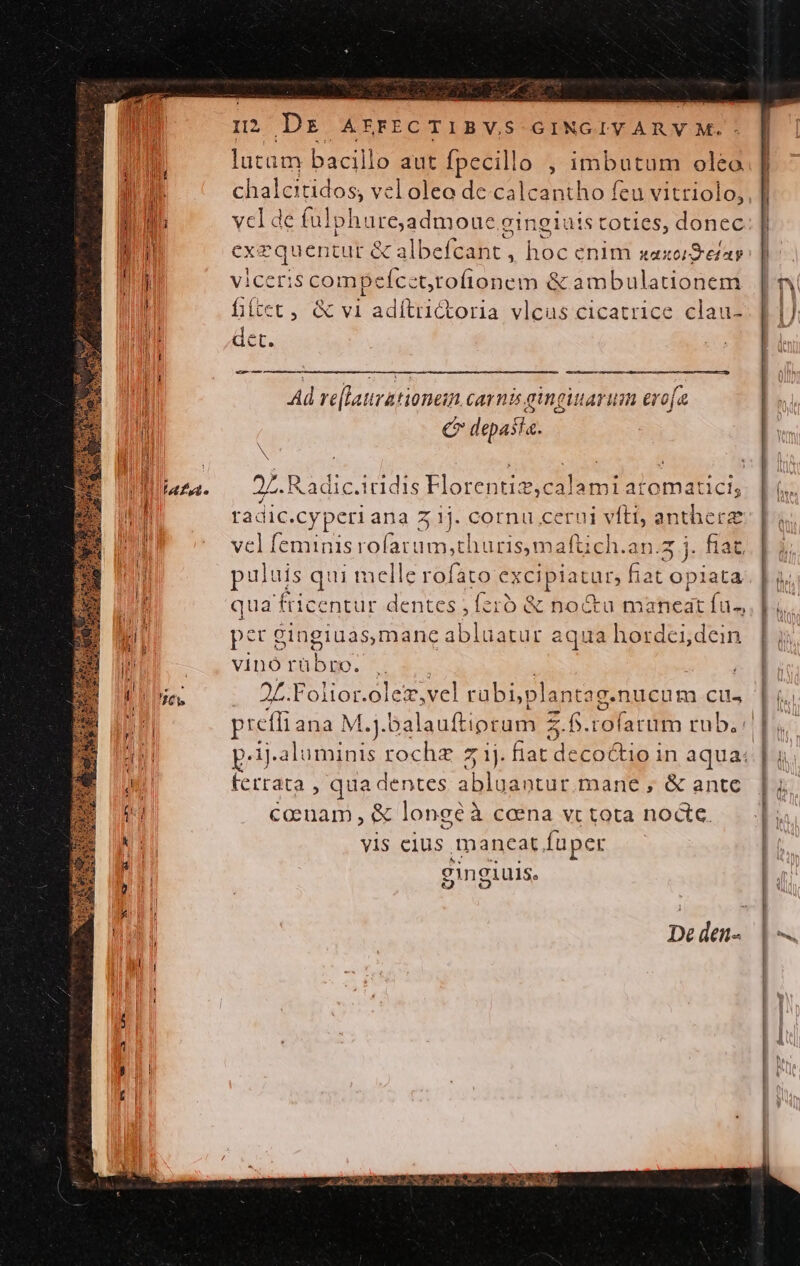 112 DE AFFECTIBVS GINGIVARVM.
lutum bacillo aut ſpecillo, imbutum oleo
chalcitidos, vel oleo de calcantho ſeu vitriolo,
vel de ſulphure, admoue gingiuis toties, donec
exæquentur & albeſcant, hoc enim κακοήθειαν
vlceris compeſcet, roſionem & ambulationem
ſiſtet, & vi adſtrictoria vlcus cicatrice clau-
det.
Ad reſtaurationem carnis gingiuarum eroſæ
& depaſtæ.
iata.
♃. Radic. iridis Florentiæ, calami aromatici,
radic. cyperi ana ʒ ij. cornu cerui vſti, antheræ
vel ſeminis roſarum, thuris, maſtich. an. ʒ j. fiat
puluis qui melle roſato excipiatur, fiat opiata
qua fricentur dentes, ſerò & noctu maneat ſu-
per gingiuas, mane abluatur aqua hordei, dein
vino rubro.
♃. Folior. oleæ, vel rubi, plantag. nucum cu-
preſſi ana M. j. balauſtiorum ℥. ß. roſarum rub.
p. ij. aluminis rochæ ʒ ij. fiat decoctio in aqua
ferrata, qua dentes abluantur mane, & ante
cœnam, & longè à cœna vt tota nocte
vis eius maneat ſuper
gingiuis.
De den-